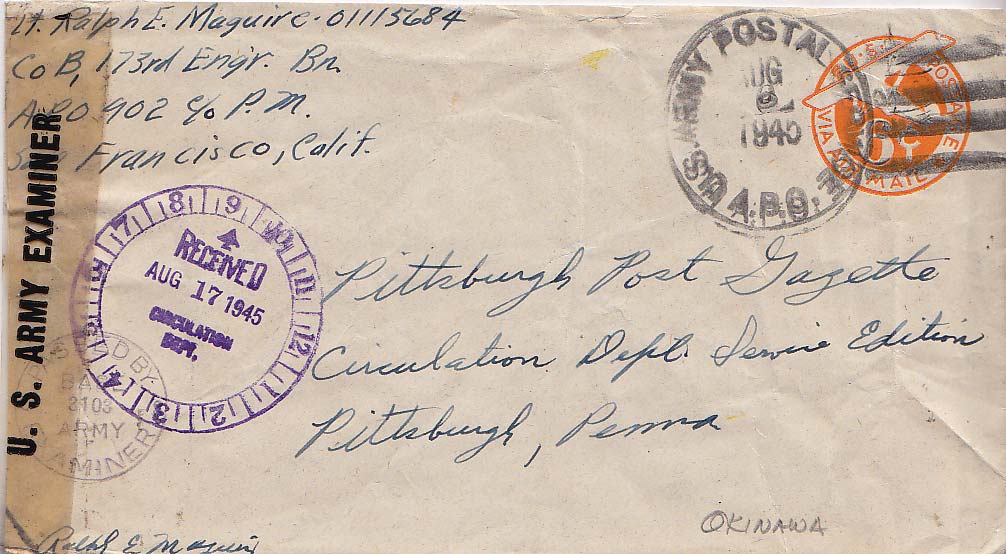 Lt. Ralph E. Maguire - 01115684
Co B, 173rd Engr. Bn.
A.P.O 902 c/o P.M.
San Francisco, Calif.
U. S. ARMY EXAMINER
ARMY POSTAL
AUG
1945
A.P.O.
POSTAGE
6c
VIA AIR MAIL
7 8 9 10 11 12 1 2 3 4
RECEIVED
AUG 17 1945
CIRCULATION
DEPT.
PASSED BY
BASE
3103
ARMY
EXAMINER
Pittsburgh Post Gazette
Circulation Dept. Service Edition
Pittsburgh, Penna
OKINAWA
Ralph E Maguire